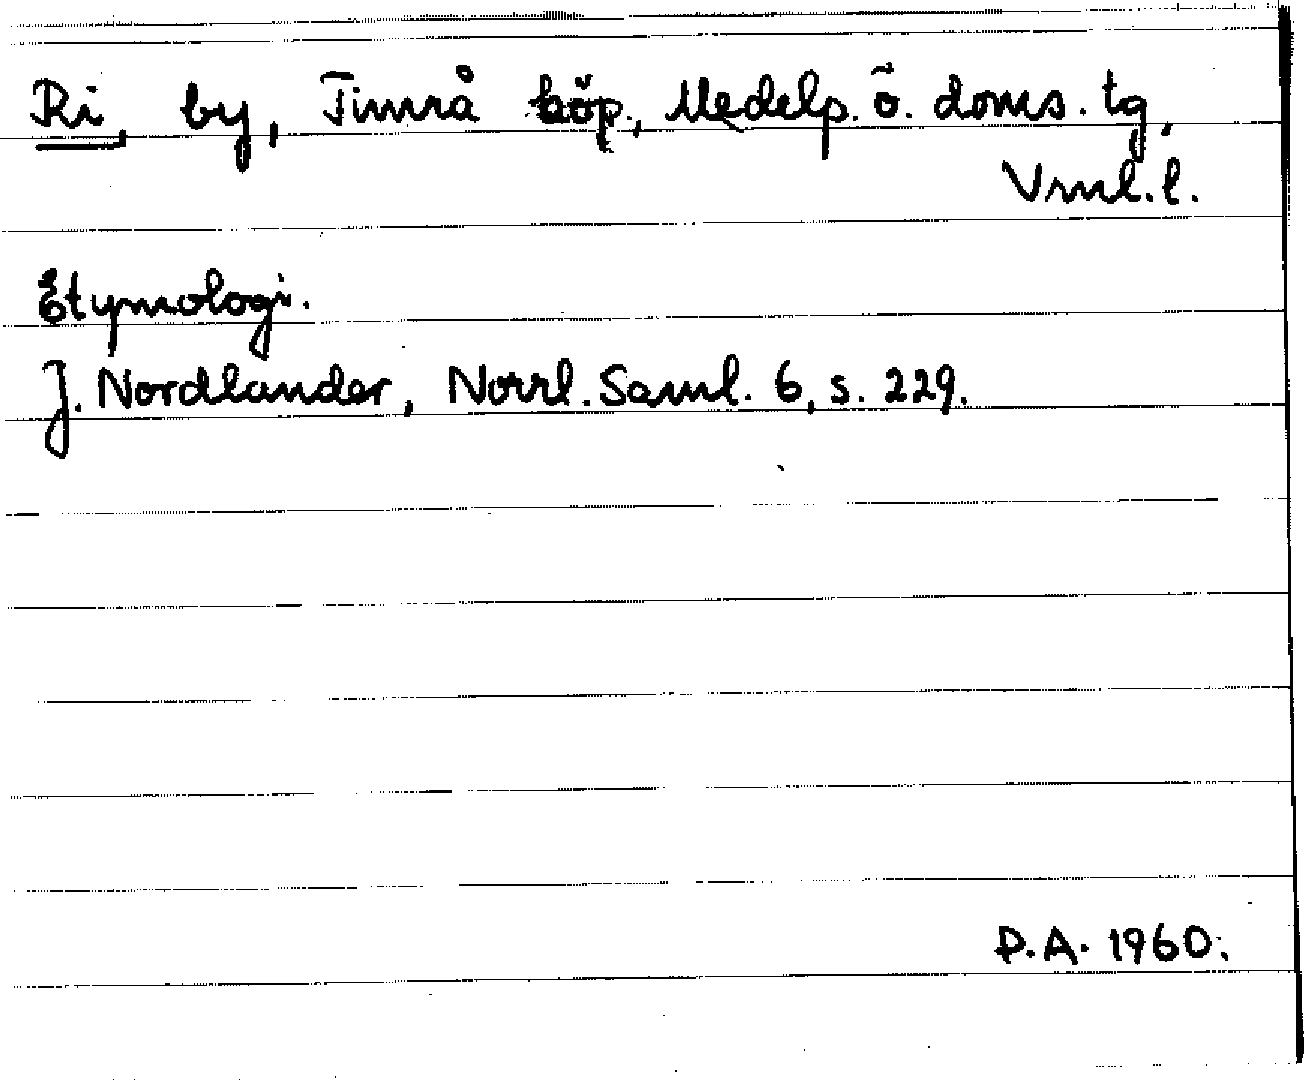 Ri, by, Timrå köp., Medelp. ö. doms. tg,
Vrnl.l.
Etymologi.
J. Nordlander, Norrl. Saml. 6, s. 229.
P.A. 1960.